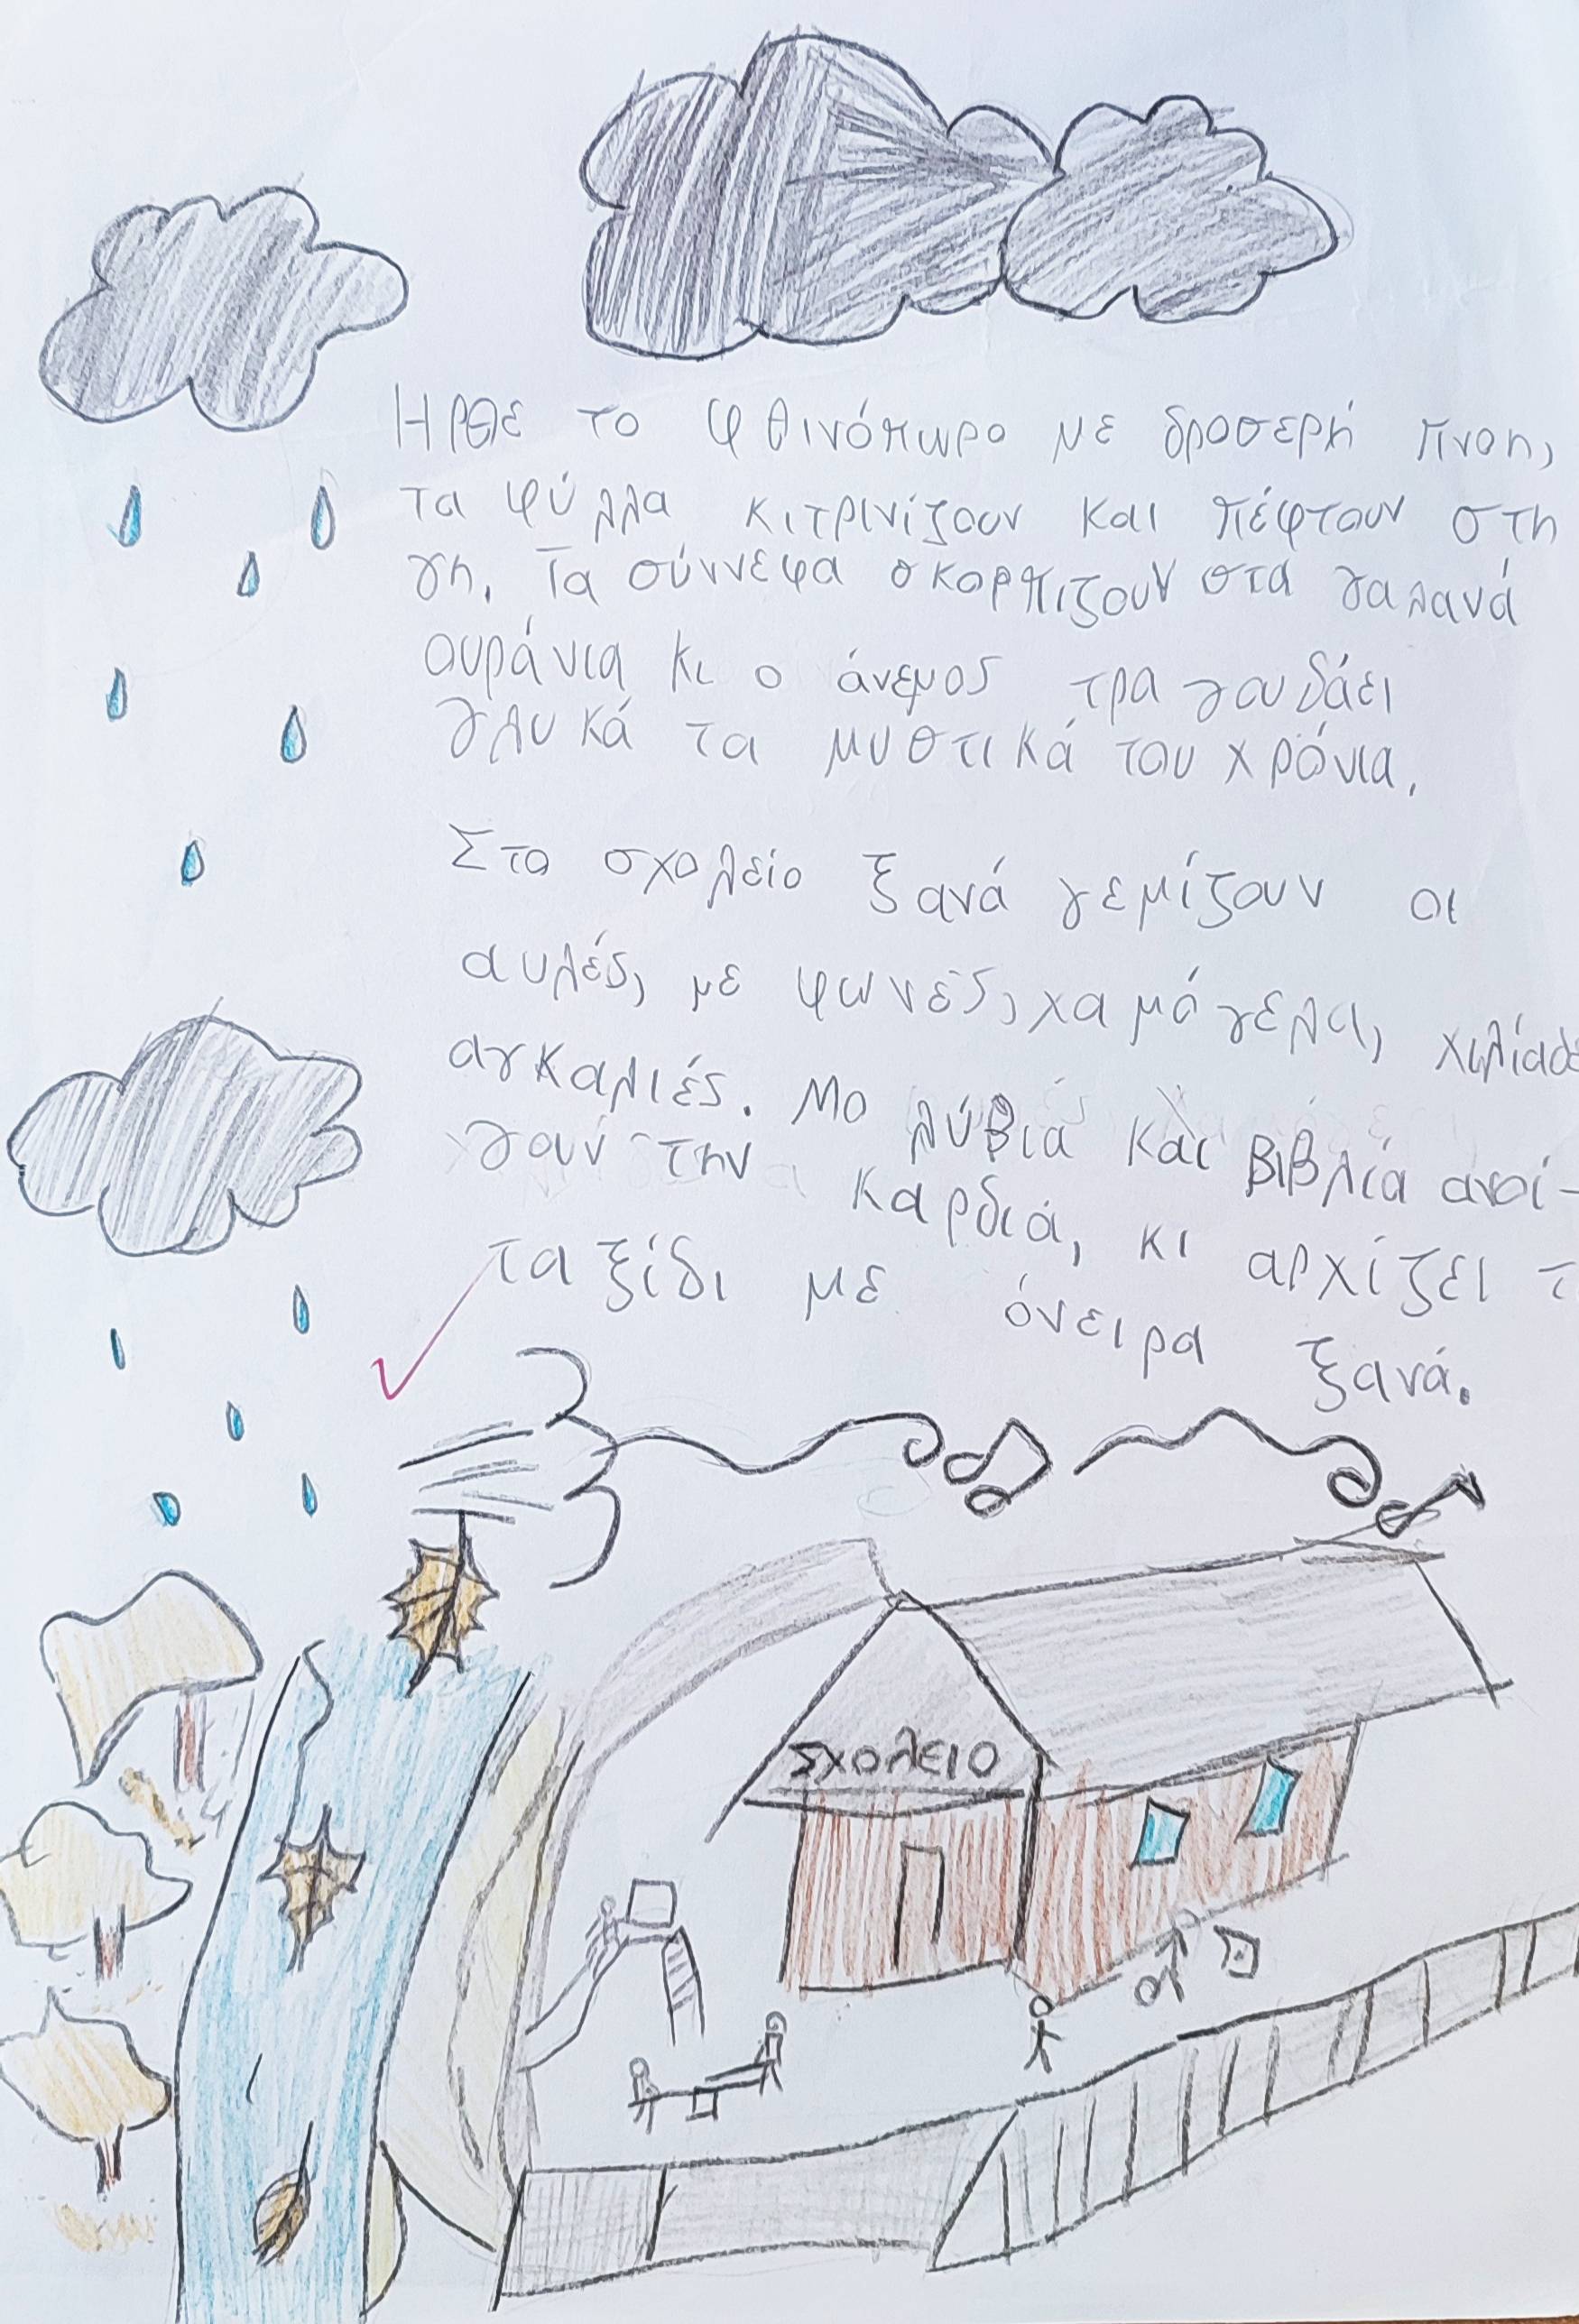 Ηρθε το φθινόπωρο με δροσερή πνοη,
τα φύλλα κιτρινίζουν και πέφτουν στη
γη. Τα σύννεφα σκορπιζουν στα γαλανά
ουράνια κι ο άνεμος τραγουδάει
γλυκά τα μυστικά του χρόνια.
Στο σχολείο ξανά γεμίζουν οι
αυλές, με φωνές, χαμόγελα, χιλίαδε
αγκαλιές. Μολύβια και βιβλία ανοί-
γουν την καρδιά, κι αρχίζει τ
ταξίδι με όνειρα ξανά.
ΣΧΟΛΕΙΟ